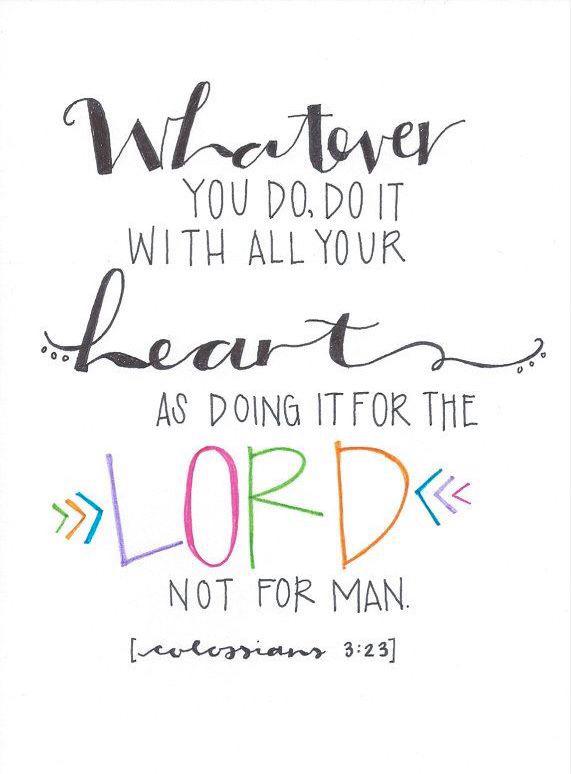 Whatever
YOU DO, DO IT
WITH ALL YOUR
heart
AS DOING IT FOR THE
LORD
NOT FOR MAN.
[colossians 3:23]